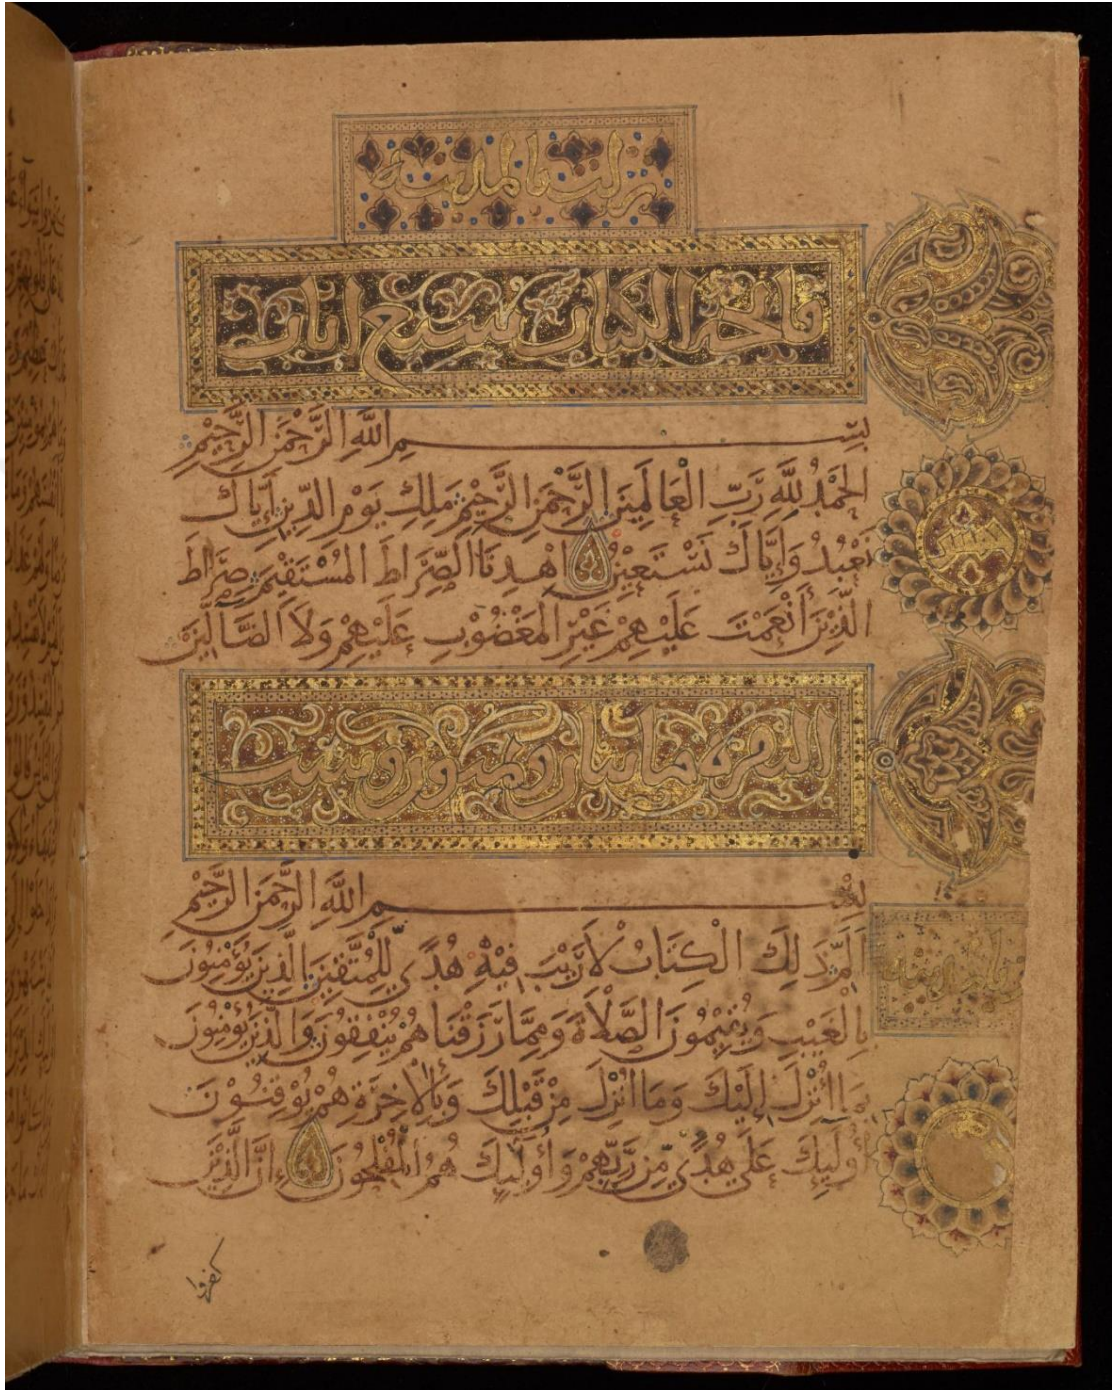 نزلت بالمدينة
فاتحة الكتاب سبع ايات
بِسْمِ اللَّهِ الرَّحْمَنِ الرَّحِيْمِ
الْحَمْدُ لِلَّهِ رَبِّ الْعَالَمِيَن الرَّحْمَنِ الرَّحِيْمِ مَلِكِ يَوْمِ الدِّيْنِ إِيَّاكَ
نَعْبُدُ وَإِيَّاكَ نَسْتَعِيْنُ اهْدِنَا الصِّرَاطَ الْمُسْتَقِيْمَ صِرَاطَ
الَّذِيْنَ أَنْعَمْتَ عَلَيْهِمْ غَيْرِ الْمَغْضُوْبِ عَلَيْهِمْ وَلاَ الضَّالِّيْنَ
خمس
البقرة مايتان وثمنون وست
بِسْمِ اللَّهِ الرَّحْمَنِ الرَّحِيْمِ
الَمّ ذَلِكَ الْكِتَابُ لاَ رَيْبَ فِيْهِ هُدًى لِلْمُتَّقِيْنَ الَّذِيْنَ يُؤْمِنُوْنَ
بِالْغَيْبِ وَيُقِيْمُونَ الصَّلاَةَ وَمِمَّا رَزَقْنَاهُمْ يُنْفِقُوْنَ وَالَّذِيْنَ يُؤْمِنُوْنَ
بِمَا أُنْزِلَ إِلَيْكَ وَمَا أُنْزِلَ مِنْ قَبْلِكَ وَبِالآخِرَةِ هُمْ يُوْقِنُوْنَ
أُولَئِكَ عَلَى هُدًى مِنْ رَبِّهِمْ وَأُولَئِكَ هُمُ الْمُفْلِحُوْنَ إِنَّ الَّذِيْنَ
كفروا